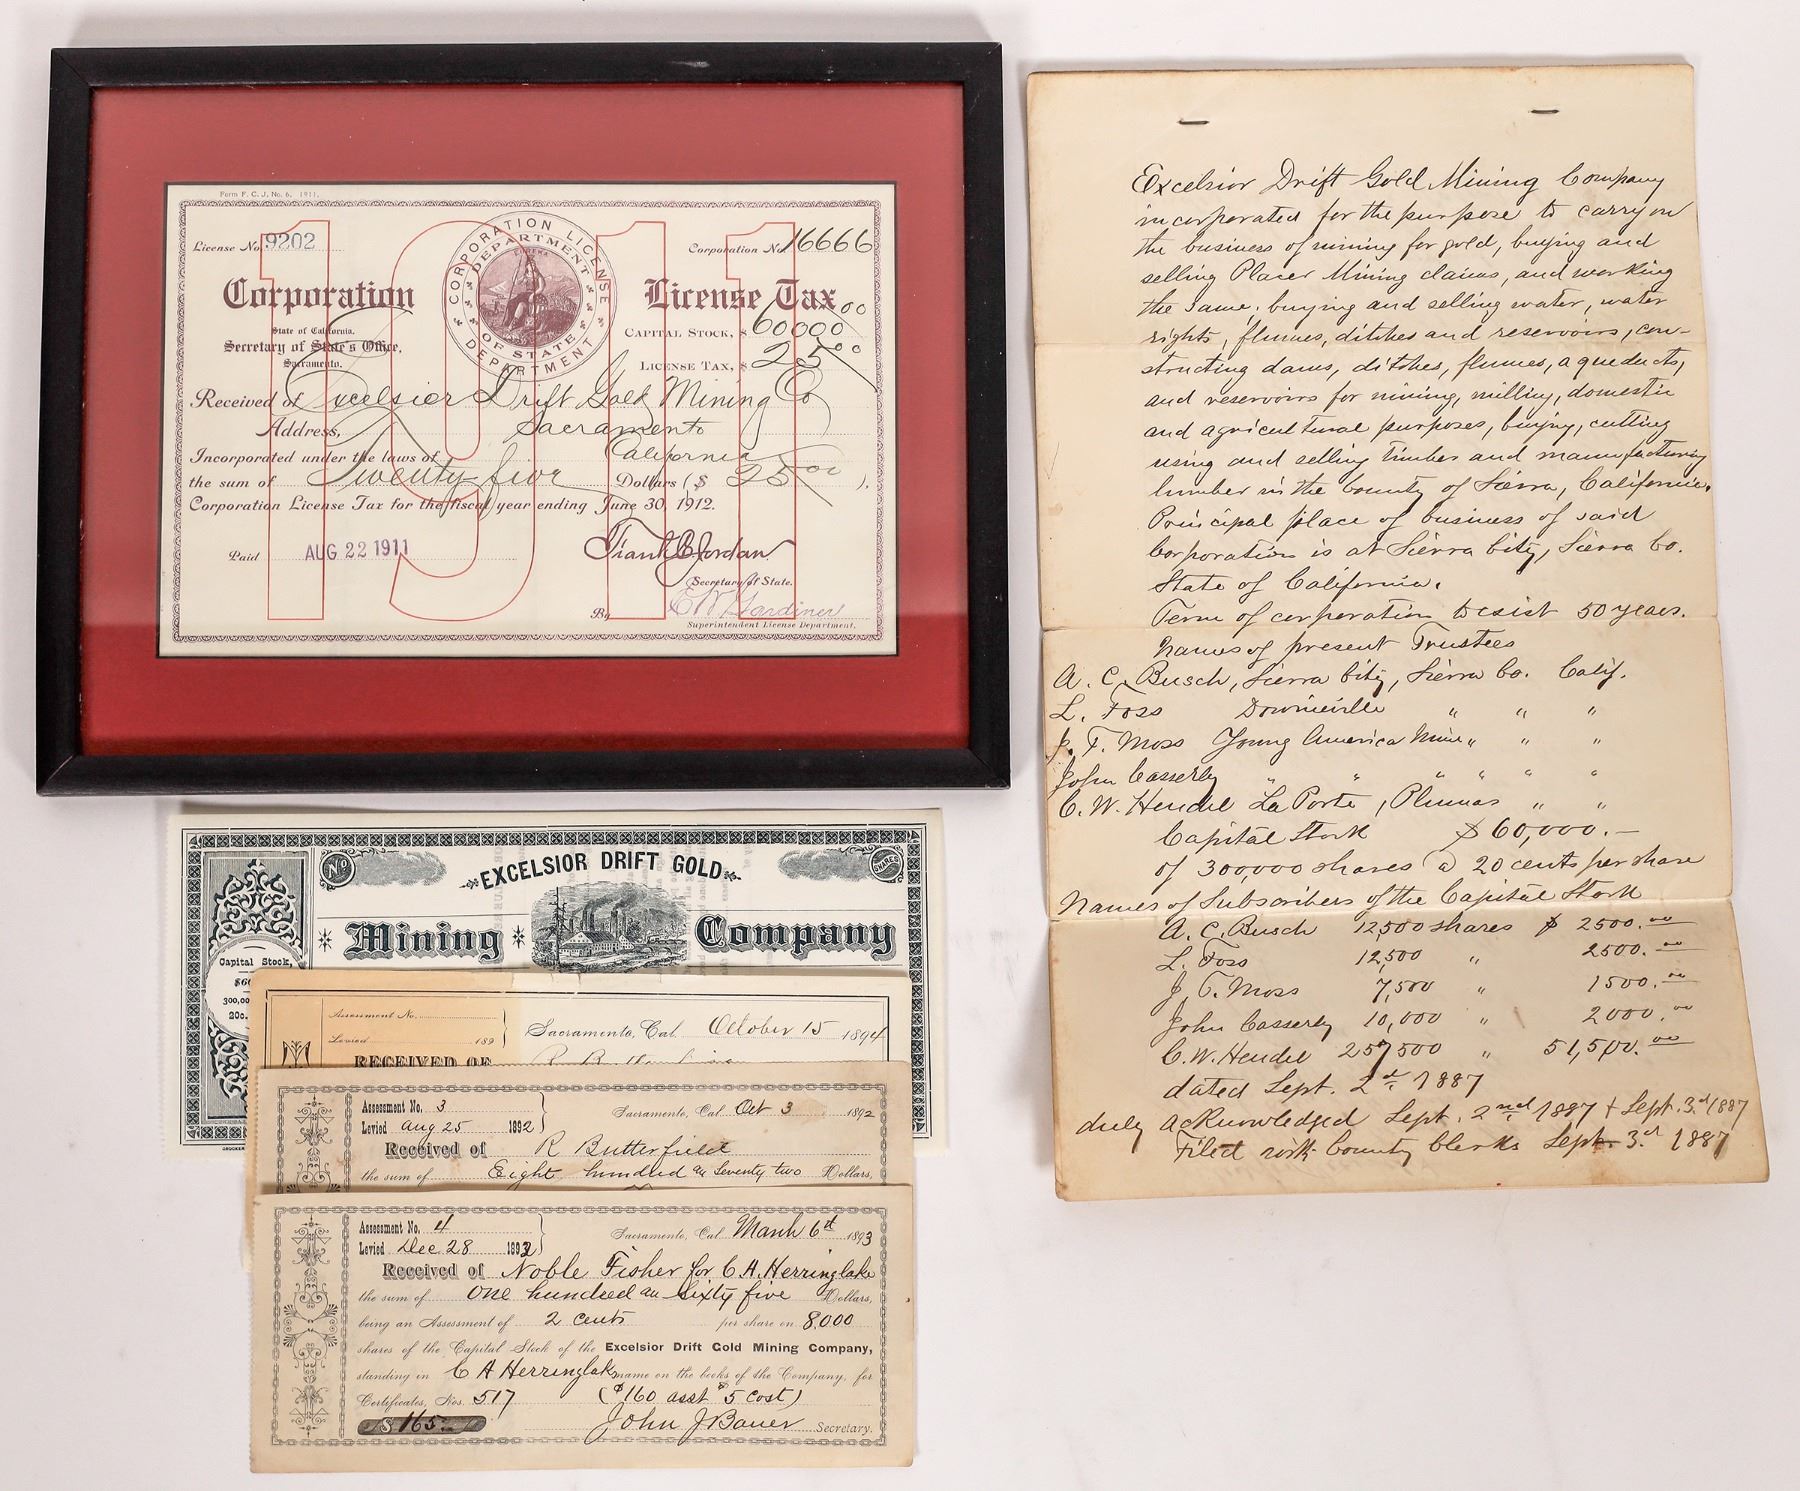 Form F. C. J. No. 6. 1911.
1911
License No. 9202
Corporation No. 16666
CORPORATION LICENSE DEPARTMENT
DEPARTMENT OF STATE
EUREKA
Corporation License Tax
State of California,
Secretary of State's Office,
Sacramento.
CAPITAL STOCK, $ 60000 00
LICENSE TAX, $ 25 00
Received of Excelsior Drift Gold Mining Co
Address, Sacramento
Incorporated under the laws of California
the sum of Twenty five Dollars ($ 25 00 ),
Corporation License Tax for the fiscal year ending June 30, 1912.
Paid AUG 22 1911
Frank C Jordan
Secretary of State.
By E W Gardiner
Superintendent License Department.
No
SHARES
EXCELSIOR DRIFT GOLD
Mining Company
Capital Stock,
300,00
20c.
Assessment No.
Levied 189
Sacramento, Cal. October 15 1894
RECEIVED OF
Assessment No. 3
Levied Aug 25 1892
Sacramento, Cal. Oct 3 1892
Received of R Butterfield
the sum of Eight hundred an Seventy two Dollars,
Assessment No. 4
Levied Dec 28 1892
Sacramento, Cal. March 6th 1893
Received of Noble Fisher for C A. Herringlake
the sum of One hundred an Sixty five Dollars,
being an Assessment of 2 cents per share on 8,000
shares of the Capital Stock of the Excelsior Drift Gold Mining Company,
standing in C A Herringlake name on the books of the Company, for
Certificates, Nos. 517 ($160 asst $5 Cost)
$ 165
John J Bauer Secretary.
Excelsior Drift Gold Mining Company
incorporated for the purpose to carry on
the business of mining for gold, buying and
selling Placer Mining claims, and working
the same. buying and selling water, water
rights, flumes, ditches and reservoirs, con-
structing dams, ditches, flumes, aqueducts,
and reservoirs for mining, milling, domestic
and agricultural purposes, buying, cutting
using and selling timber and manufacturing
lumber in the County of Sierra, California.
Principal place of business of said
Corporation is at Sierra City, Sierra Co.
State of California.
Term of corporation to exist 50 years.
Names of present Trustees
A. C. Busch, Sierra City, Sierra Co. Calif.
L. Foss Downieville " " "
J. T. Moss Young America Mine " " "
John Casserly " " " " " "
C. W. Hendel La Porte, Plumas " "
Capital Stock $60,000.—
of 300,000 shares @ 20 cents per share
Names of Subscribers of the Capital Stock
A. C. Busch 12,500 shares $ 2500.00
L. Foss 12,500 " 2500.00
J. T. Moss 7,500 " 1500.00
John Casserly 10,000 " 2000.00
C. W. Hendel 257,500 " 51,500.00
dated Sept. 2d 1887
duly acknowledged Sept. 2nd 1887 + Sept. 3d 1887
Filed with County Clerks Sept. 3d 1887